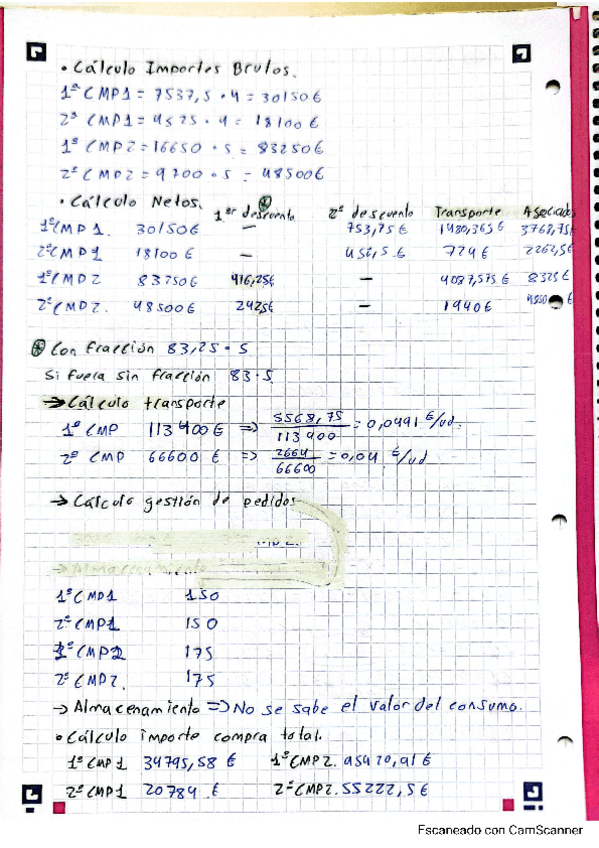 • Cálculo Importes Brutos.
1ª CMP1 = 7537,5 • 4 = 30150€
2ª CMP1 = 4525 • 4 = 18100€
1ª CMP2 = 16650 • 5 = 83250€
2ª CMP2 = 9700 • 5 = 48500€
• Cálculo Netos. 1er descuento 2º descuento Transporte Asociados
1ª CMP1. 30150€ — 753,75€ 1480,365€ 3768,75€
2ª CMP1 18100€ — 452,5€ 724€ 2262,5€
1ª CMP2 83250€ 416,25€ — 4087,575€ 8325€
2ª CMP2. 48500€ 242,5€ — 1940€ €
Con fracción 83,25 • 5
Si fuera sin fracción 83 • 5
→ Cálculo transporte
1ª CMP 113400€ => 5568,75 / 113400 = 0,0491 €/ud.
2ª CMP 66600€ => 2664 / 66600 = 0,04 €/ud
→ Cálculo gestión de pedidos
→ Almacenamiento
1ª CMP1 150
2ª CMP1 150
1ª CMP2 175
2ª CMP2. 175
→ Almacenamiento => No se sabe el valor del consumo.
• Cálculo importe compra total.
1ª CMP1 34795,58 € 1ª CMP2. 95420,91€
2ª CMP1 20784 € 2ª CMP2. 55222,5€
Escaneado con CamScanner